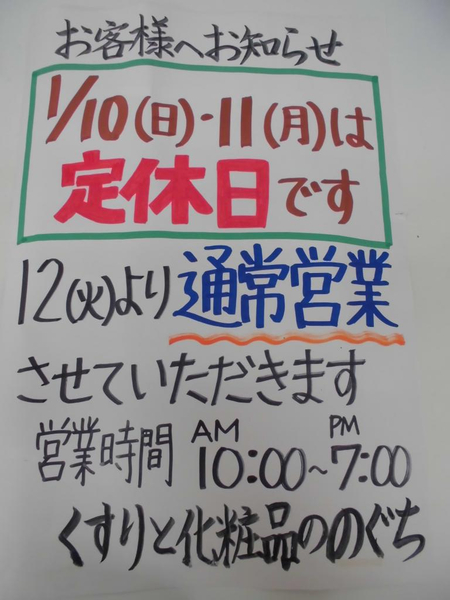 お客様へお知らせ
1/10(日)・11(月)は
定休日です
12(火)より通常営業
させていただきます
営業時間 AM10:00~PM7:00
くすりと化粧品ののぐち